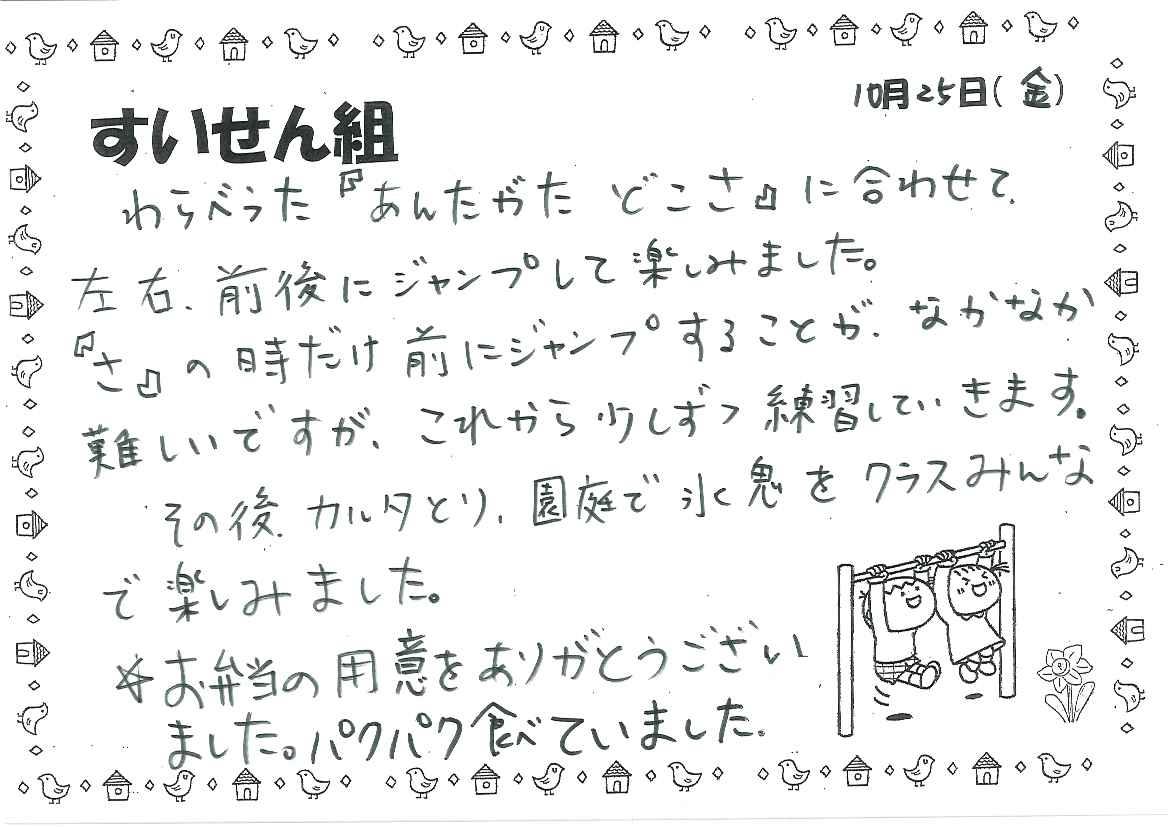 10月25日(金)
すいせん組
わらべうた『あんたがた どこさ』に合わせて、
左右、前後にジャンプして楽しみました。
『さ』の時だけ前にジャンプすることが、なかなか
難しいですが、これから少しずつ練習していきます。
その後、カルタとり、園庭で氷鬼をクラスみんな
で楽しみました。
☆お弁当の用意をありがとうござい
ました。パクパク食べていました。